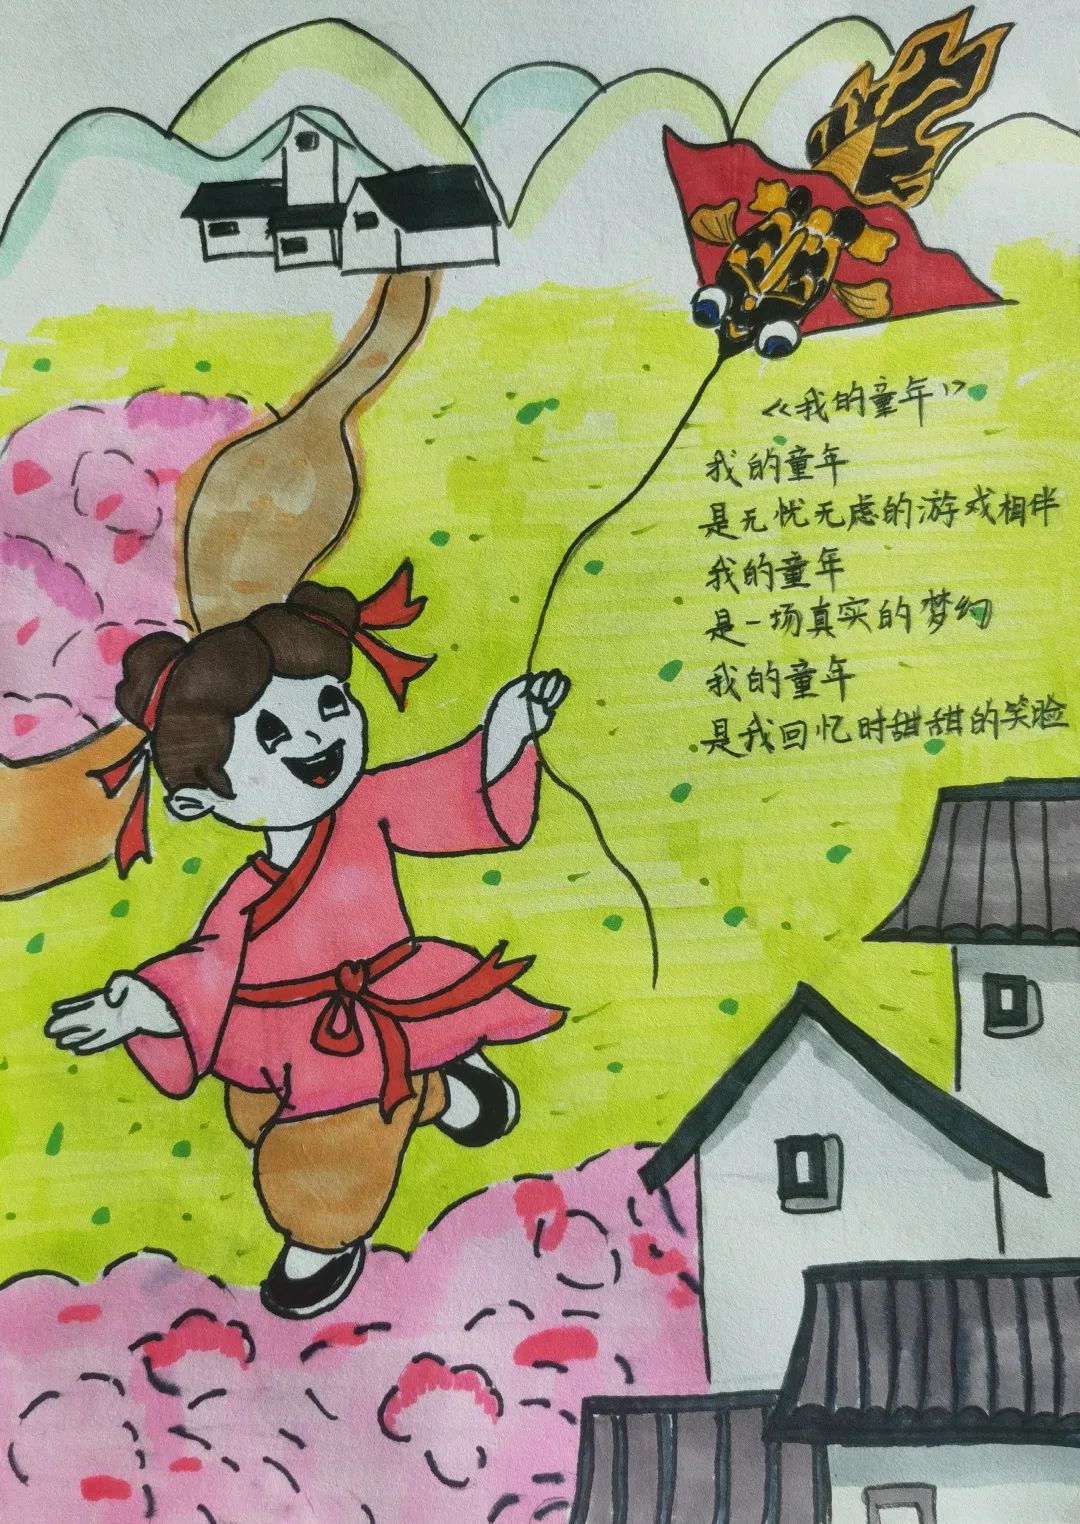 《我的童年》
我的童年
是无忧无虑的游戏相伴
我的童年
是一场真实的梦幻
我的童年
是我回忆时甜甜的笑脸